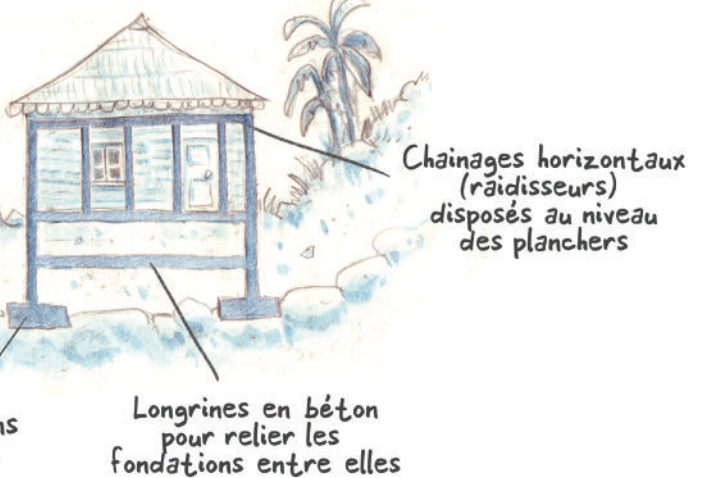 Chainages horizontaux
(raidisseurs)
disposés au niveau
des planchers
Longrines en béton
pour relier les
fondations entre elles